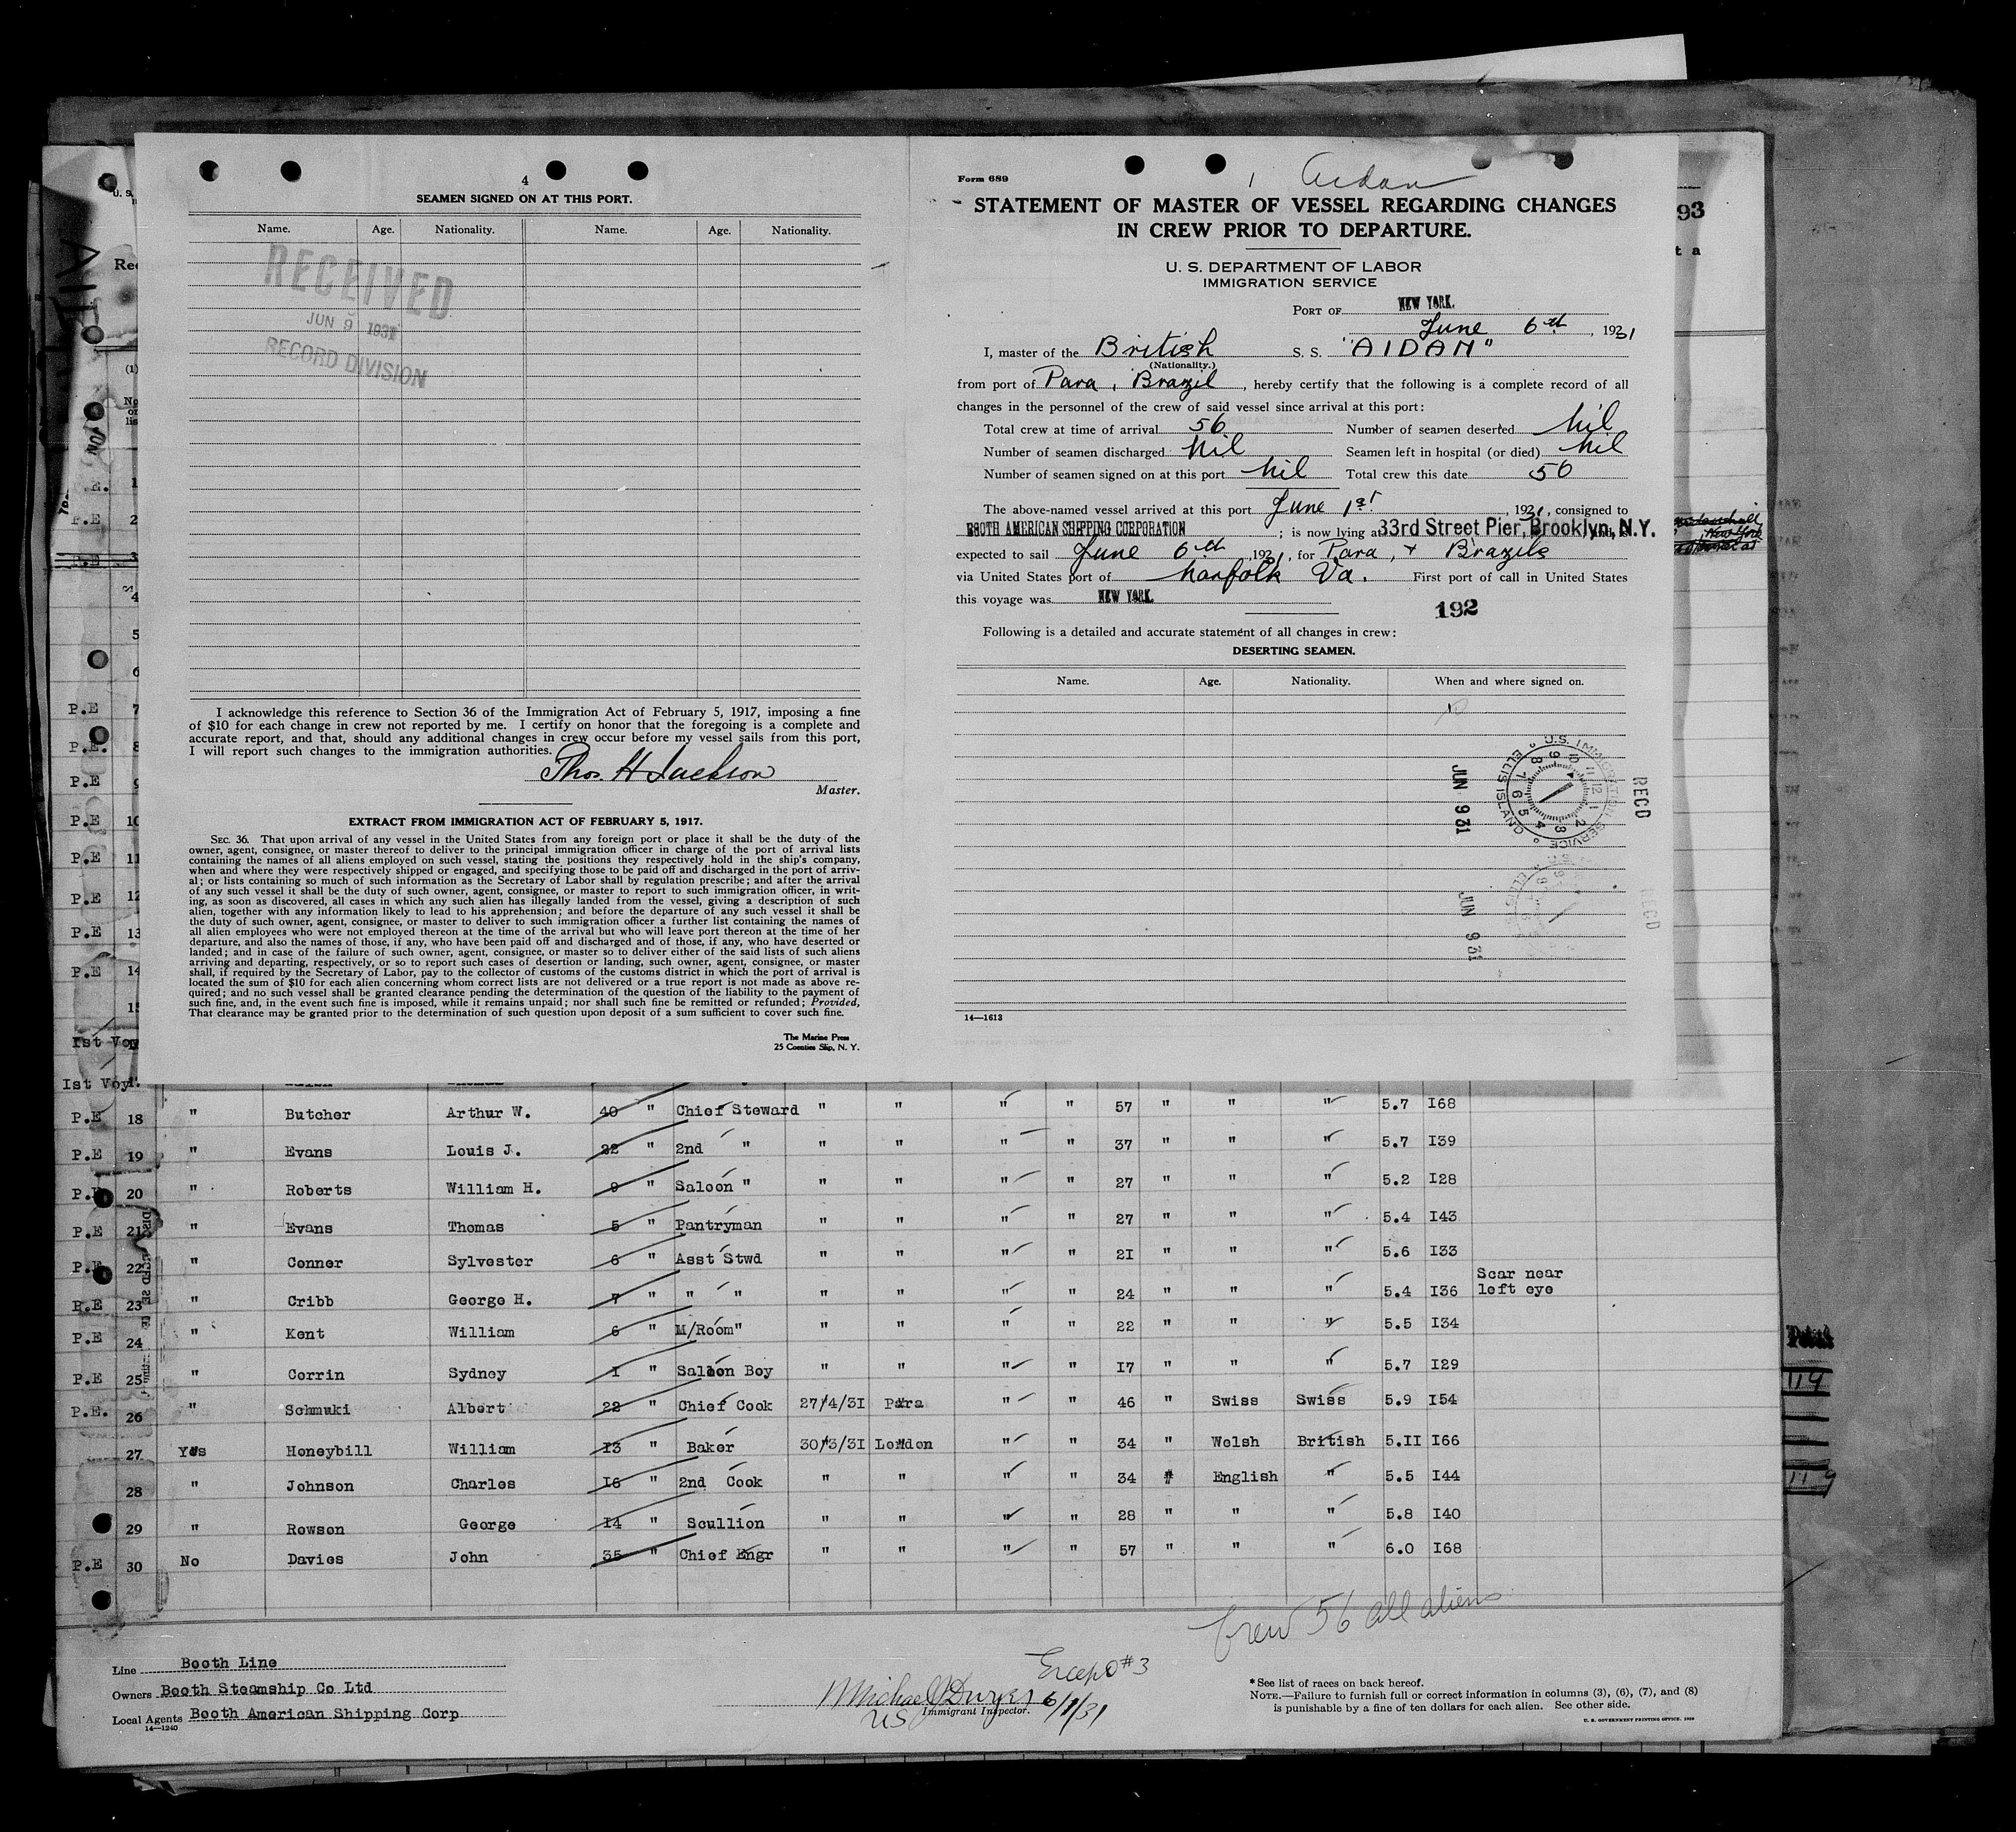 4
SEAMEN SIGNED ON AT THIS PORT.
Name. Age. Nationality. Name. Age. Nationality.
RECEIVED
JUN 9 1931
RECORD DIVISION
I acknowledge this reference to Section 36 of the Immigration Act of February 5, 1917, imposing a fine
of $10 for each change in crew not reported by me. I certify on honor that the foregoing is a complete and
accurate report, and that, should any additional changes in crew occur before my vessel sails from this port,
I will report such changes to the immigration authorities.
Thos. H Jackson
Master.
EXTRACT FROM IMMIGRATION ACT OF FEBRUARY 5, 1917.
SEC. 36. That upon arrival of any vessel in the United States from any foreign port or place it shall be the duty of the
owner, agent, consignee, or master thereof to deliver to the principal immigration officer in charge of the port of arrival lists
containing the names of all aliens employed on such vessel, stating the positions they respectively hold in the ship's company,
when and where they were respectively shipped or engaged, and specifying those to be paid off and discharged in the port of arriv-
al; or lists containing so much of such information as the Secretary of Labor shall by regulation prescribe; and after the arrival
of any such vessel it shall be the duty of such owner, agent, consignee, or master to report to such immigration officer, in writ-
ing, as soon as discovered, all cases in which any such alien has illegally landed from the vessel, giving a description of such
alien, together with any information likely to lead to his apprehension; and before the departure of any such vessel it shall be
the duty of such owner, agent, consignee, or master to deliver to such immigration officer a further list containing the names of
all alien employees who were not employed thereon at the time of the arrival but who will leave port thereon at the time of her
departure, and also the names of those, if any, who have been paid off and discharged and of those, if any, who have deserted or
landed; and in case of the failure of such owner, agent, consignee, or master so to deliver either of the said lists of such aliens
arriving and departing, respectively, or so to report such cases of desertion or landing, such owner, agent, consignee, or master
shall, if required by the Secretary of Labor, pay to the collector of customs of the customs district in which the port of arrival is
located the sum of $10 for each alien concerning whom correct lists are not delivered or a true report is not made as above re-
quired; and no such vessel shall be granted clearance pending the determination of the question of the liability to the payment of
such fine, and, in the event such fine is imposed, while it remains unpaid; nor shall such fine be remitted or refunded; Provided,
That clearance may be granted prior to the determination of such question upon deposit of a sum sufficient to cover such fine.
The Marine Press
25 Coenties Slip, N. Y.
Form 689
1 Aidan
STATEMENT OF MASTER OF VESSEL REGARDING CHANGES
IN CREW PRIOR TO DEPARTURE.
U. S. DEPARTMENT OF LABOR
IMMIGRATION SERVICE
PORT OF NEW YORK.
June 6th, 1931
I, master of the British S. S. "AIDAN"
(Nationality.)
from port of Para, Brazil, hereby certify that the following is a complete record of all
changes in the personnel of the crew of said vessel since arrival at this port:
Total crew at time of arrival 56 Number of seamen deserted Nil
Number of seamen discharged Nil Seamen left in hospital (or died) Nil
Number of seamen signed on at this port Nil Total crew this date 56
The above-named vessel arrived at this port June 1st, 1931, consigned to
BOOTH AMERICAN SHIPPING CORPORATION; is now lying at 33rd Street Pier, Brooklyn, N.Y.
expected to sail June 6th 1931, for Para, + Brazils
via United States port of Norfolk Va. First port of call in United States
this voyage was NEW YORK.
192
Following is a detailed and accurate statement of all changes in crew:
DESERTING SEAMEN.
Name. Age. Nationality. When and where signed on.
U.S. IMMIGRATION SERVICE ELLIS ISLAND
RECD JUN 9 31
RECD JUN 9 31
14—1613
93
t a
P.E 18 " Butcher Arthur W. 40 " Chief Steward " " " " 57 " " " 5.7 I68
P.E 19 " Evans Louis J. 22 " 2nd " " " " " 37 " " " 5.7 I39
P.E 20 " Roberts William H. 9 " Saloon " " " " " 27 " " " 5.2 I28
P.E 21 " Evans Thomas 5 " Pantryman " " " " 27 " " " 5.4 I43
P.E 22 " Conner Sylvester 6 " Asst Stwd " " " " 2I " " " 5.6 I33
P.E 23 " Cribb George H. 7 " " " " " " " 24 " " " 5.4 I36 Scar near left eye
P.E 24 " Kent William 6 " M/Room" " " " " 22 " " " 5.5 I34
P.E 25 " Corrin Sydney I " Saloon Boy " " " " I7 " " " 5.7 I29
P.E. 26 " Schmuki Albert 22 " Chief Cook 27/4/3I Para " " 46 " Swiss Swiss 5.9 I54
27 Yes Honeybill William I3 " Baker 30/3/3I London " " 34 " Welsh British 5.II I66
28 " Johnson Charles I6 " 2nd Cook " " " " 34 " English " 5.5 I44
29 " Rowson George I4 " Scullion " " " " 28 " " " 5.8 I40
P.E 30 No Davies John 35 " Chief Engr " " " " 57 " " " 6.0 I68
Crew 56 all aliens
Except #3
Line Booth Line
Owners Booth Steamship Co Ltd
Local Agents Booth American Shipping Corp
14—1240
Michael J Dwyer 6/1/31
US Immigrant Inspector.
*See list of races on back hereof.
NOTE.—Failure to furnish full or correct information in columns (3), (6), (7), and (8)
is punishable by a fine of ten dollars for each alien. See other side.
U. S. GOVERNMENT PRINTING OFFICE. 1929
119
119